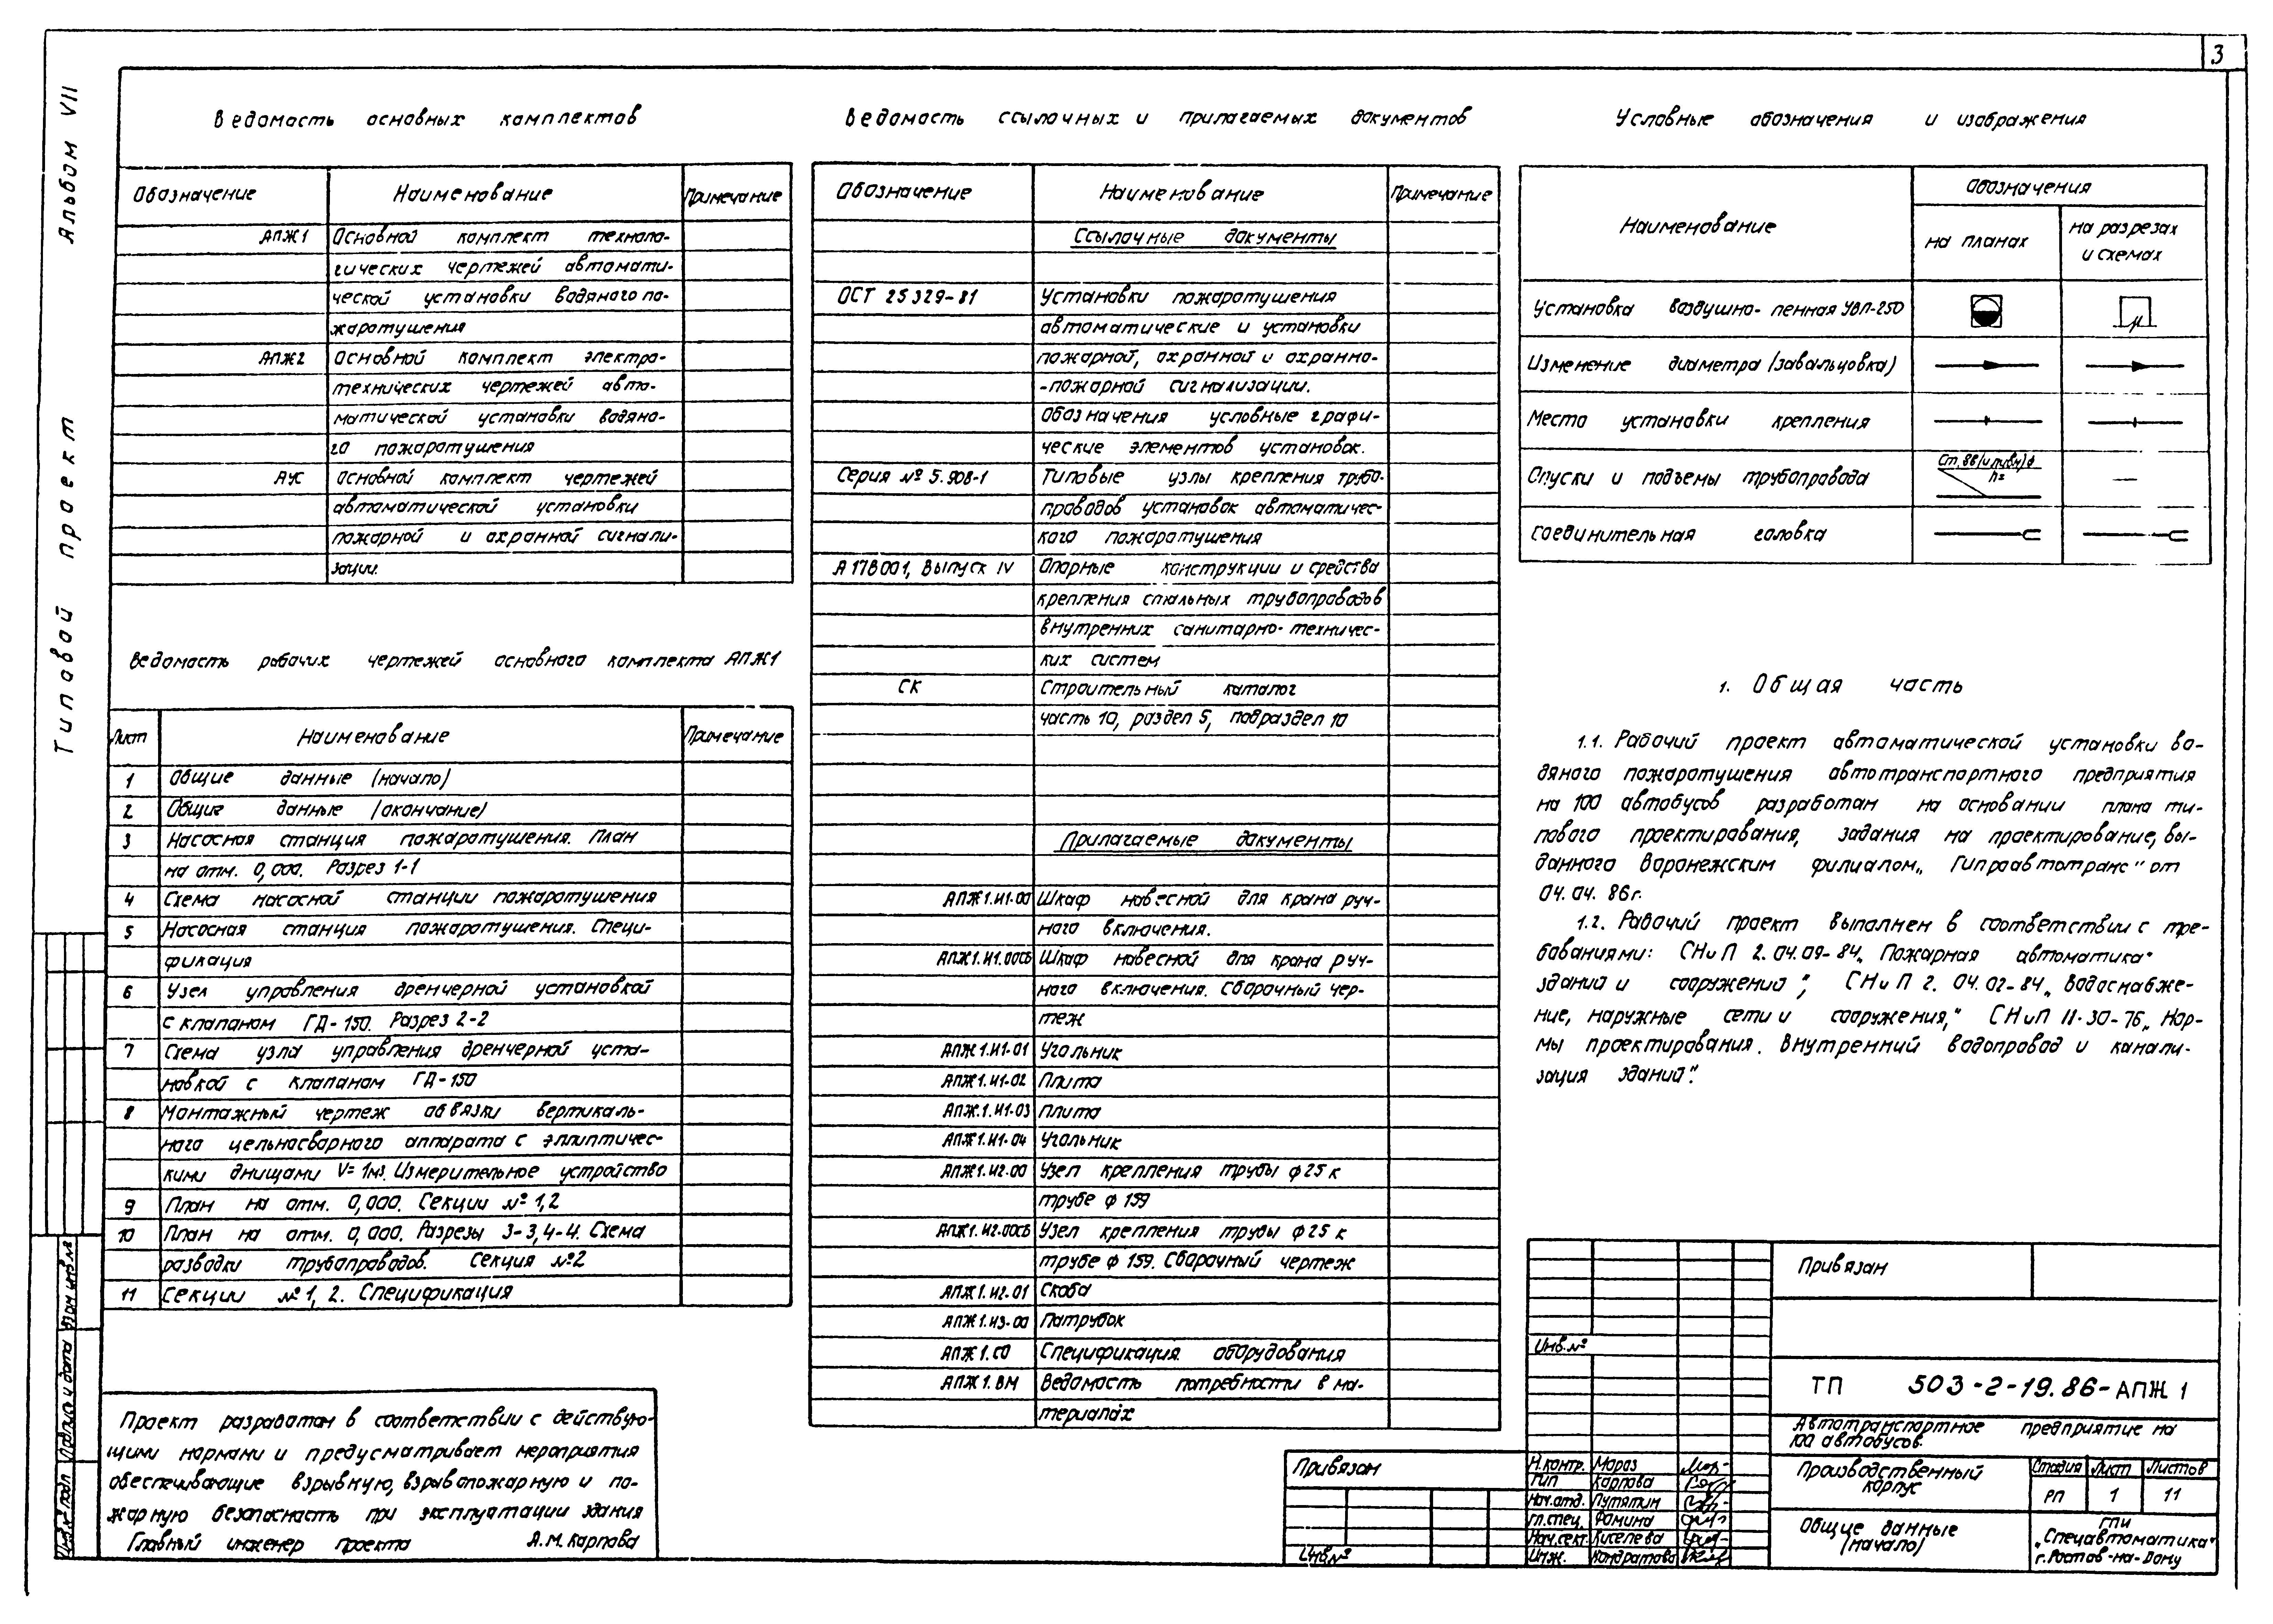 3
Альбом VII
Типовой проект
Ведомость основных комплектов
Обозначение Наименование Примечание
АПЖ1 Основной комплект техноло-
гических чертежей автомати-
ческой установки водяного по-
жаротушения
АПЖ2 Основной комплект электро-
технических чертежей авто-
матической установки водяно-
го пожаротушения
АУС Основной комплект чертежей
автоматической установки
пожарной и охранной сигнали-
зации.
Ведомость рабочих чертежей основного комплекта АПЖ1
Лист Наименование Примечание
1 Общие данные (начало)
2 Общие данные (окончание)
3 Насосная станция пожаротушения. План
на отм. 0,000. Разрез 1-1
4 Схема насосной станции пожаротушения
5 Насосная станция пожаротушения. Специ-
фикация
6 Узел управления дренчерной установкой
с клапаном ГД-150. Разрез 2-2
7 Схема узла управления дренчерной уста-
новкой с клапаном ГД-150
8 Монтажный чертеж обвязки вертикаль-
ного цельносварного аппарата с эллиптичес-
кими днищами V=1м3. Измерительное устройство
9 План на отм. 0,000. Секции №1,2
10 План на отм. 0,000. Разрезы 3-3, 4-4. Схема
разводки трубопроводов. Секция №2
11 Секции №1, 2. Спецификация
Проект разработан в соответствии с действую-
щими нормами и предусматривает мероприятия
обеспечивающие взрывную, взрывопожарную и по-
жарную безопасность при эксплуатации здания
Главный инженер проекта А.М.Карпова
Ведомость ссылочных и прилагаемых документов
Обозначение Наименование Примечание
Ссылочные документы
ОСТ 25 329-81 Установки пожаротушения
автоматические и установки
пожарной, охранной и охранно-
-пожарной сигнализации.
Обозначения условные графи-
ческие элементов установок.
Серия № 5.908-1 Типовые узлы крепления трубо-
проводов установок автоматичес-
кого пожаротушения
А 17В001, Выпуск IV Опорные конструкции и средства
крепления стальных трубопроводов
внутренних санитарно-техничес-
ких систем
СК Строительный каталог
часть 10, раздел 5, подраздел 10
Прилагаемые документы
АПЖ1.И1.00 Шкаф навесной для крана руч-
ного включения.
АПЖ1.И1.00СБ Шкаф навесной для крана руч-
ного включения. Сборочный чер-
теж
АПЖ1.И1-01 Угольник
АПЖ1.И1-02 Плита
АПЖ.1.И1-03 Плита
АПЖ1.И1-04 Угольник
АПЖ1.И2.00 Узел крепления трубы ф25 к
трубе ф 159
АПЖ1.И2.00СБ Узел крепления трубы ф25 к
трубе ф 159. Сборочный чертеж
АПЖ1.И2-01 Скоба
АПЖ1.И3-00 Патрубок
АПЖ1.СО Спецификация оборудования
АПЖ1.ВМ Ведомость потребности в ма-
териалах
Условные обозначения и изображения
Наименование Обозначения
на планах на разрезах
и схемах
Установка воздушно-пенная УВП-250
Изменение диаметра (завальцовка)
Место установки крепления
Опуски и подъемы трубопровода
h=
Соединительная головка
1. Общая часть
1.1. Рабочий проект автоматической установки во-
дяного пожаротушения автотранспортного предприятия
на 100 автобусов разработан на основании плана ти-
пового проектирования, задания на проектирование, вы-
данного Воронежским филиалом „Гипроавтотранс" от
04.04. 86г.
1.2. Рабочий проект выполнен в соответствии с тре-
бованиями: СНиП 2.04.09-84 „Пожарная автоматика"
зданий и сооружений"; СНиП 2. 04. 02-84 „Водоснабже-
ние, наружные сети и сооружения," СНиП II-30-76 „Нор-
мы проектирования. Внутренний водопровод и канали-
зация зданий".
Привязан
Инв.№
ТП 503-2-19.86-АПЖ 1
Автотранспортное предприятие на
100 автобусов.
Производственный
корпус
Стадия Лист Листов
РП 1 11
Общие данные
(начало)
ГПИ
„Спецавтоматика"
г.Ростов-на-Дону
Привязан
Инв.№
Н.контр. Мороз
ГИП Карпова
Нач.отд. Путятин
Гл.спец. Фомина
Нач.сект. Киселева
Инж. Кондратова
Инв.№ подл. Подпись и дата Взам.инв.№